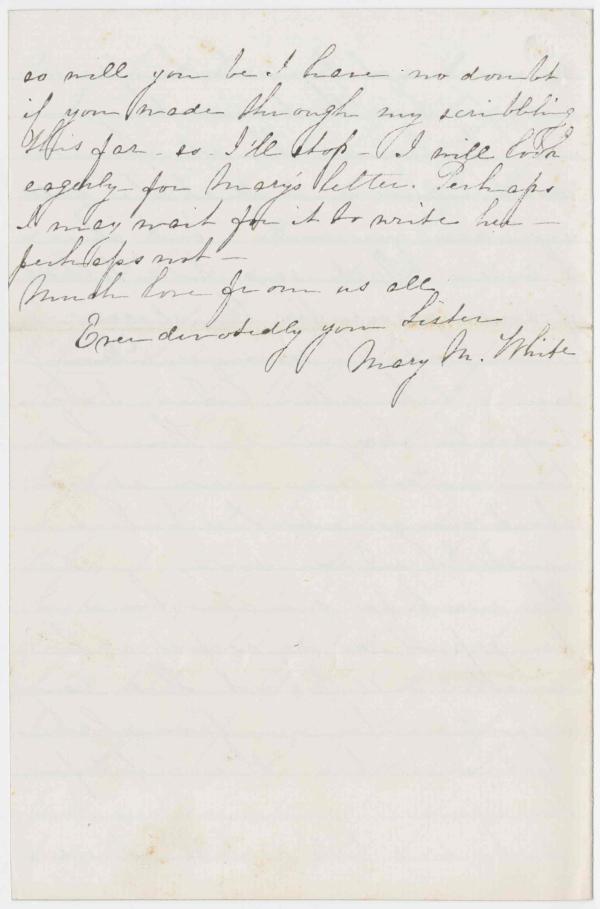 so will you be I have no doubt
if you wade through my scribbling
this far - so I'll stop - I will look
eagerly for Mary's letter. Perhaps
I may wait for it to write her -
perhaps not -
Much love from us all,
Ever devotedly your Sister
Mary M. White